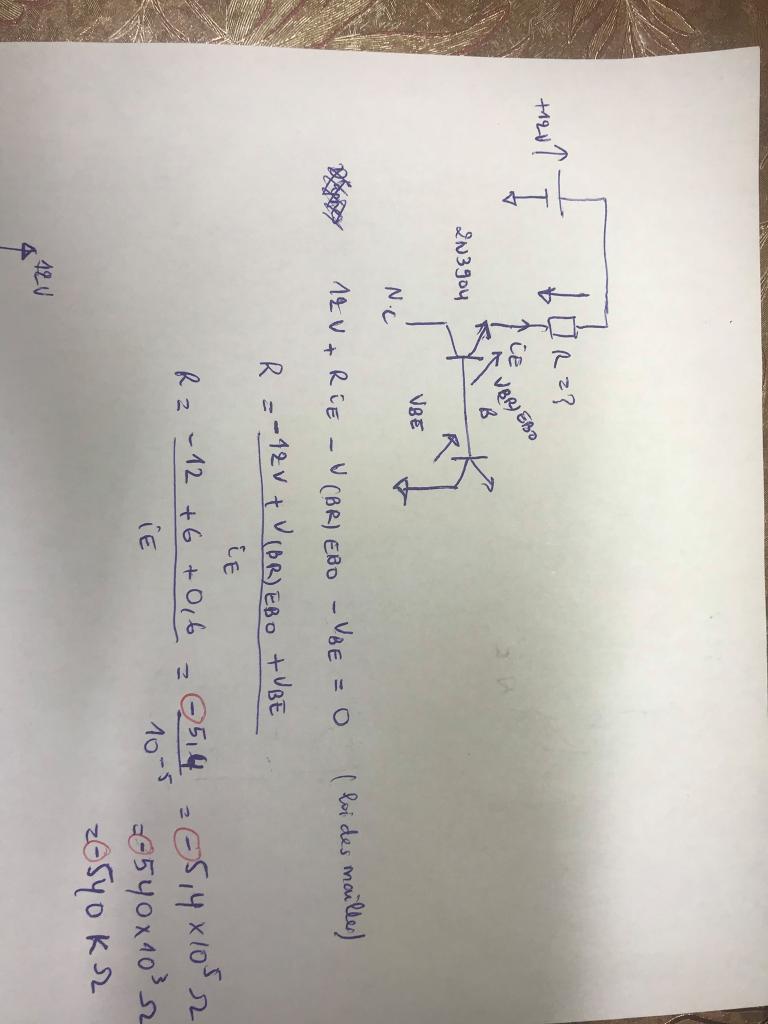 +12V
R = ?
iE
V(BR)EBO
B
2N3904
N.C
VBE
12V + R iE - V(BR)EBO - VBE = 0 (loi des mailles)
R = -12V + V(BR)EBO + VBE
iE
R = -12 + 6 + 0,6 = -5,4 = -5,4 x 10^5 Ω
iE 10^-5 = -540 x 10^3 Ω
= -540 K Ω
12V